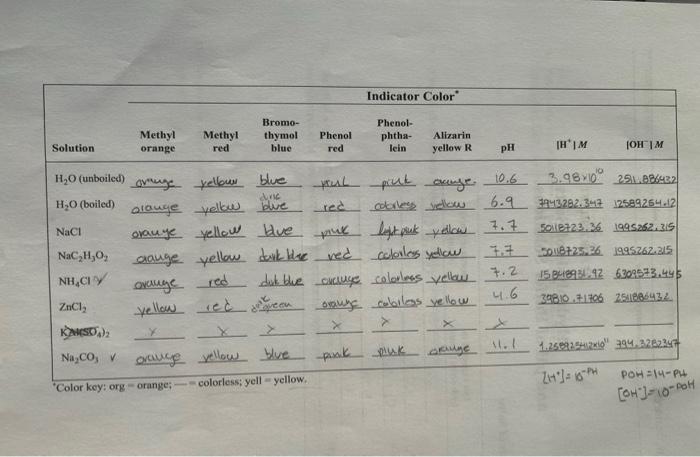 Indicator Color*
Solution Methyl orange Methyl red Bromo-thymol blue Phenol red Phenol-phtha-lein Alizarin yellow R pH [H⁺] M [OH⁻] M
H₂O (unboiled) orange yellow blue pink pink orange 10.6 3.98x10¹⁰ 2511.886432
H₂O (boiled) orange yellow blue red colorless yellow 6.9 7943282.347 12589254.12
NaCl orange yellow blue pink light pink yellow 7.7 50118723.36 1995262.315
NaC₂H₃O₂ orange yellow dark blue red colorless yellow 7.7 50118723.36 1995262.315
NH₄Cl orange red dark blue orange colorless yellow 7.2 15848931.92 6309573.445
ZnCl₂ yellow red dark green orange colorless yellow 4.6 39810.71706 2511886432
x x x x x x x
Na₂CO₃ v orange yellow blue pink pink orange 11.1 1.258925412x10¹¹ 794.3282347
*Color key: org = orange; — = colorless; yell = yellow.
[H⁺]=10⁻ᵖᴴ POH=14-PH
[OH⁻]=10⁻ᵖᵒᴴ